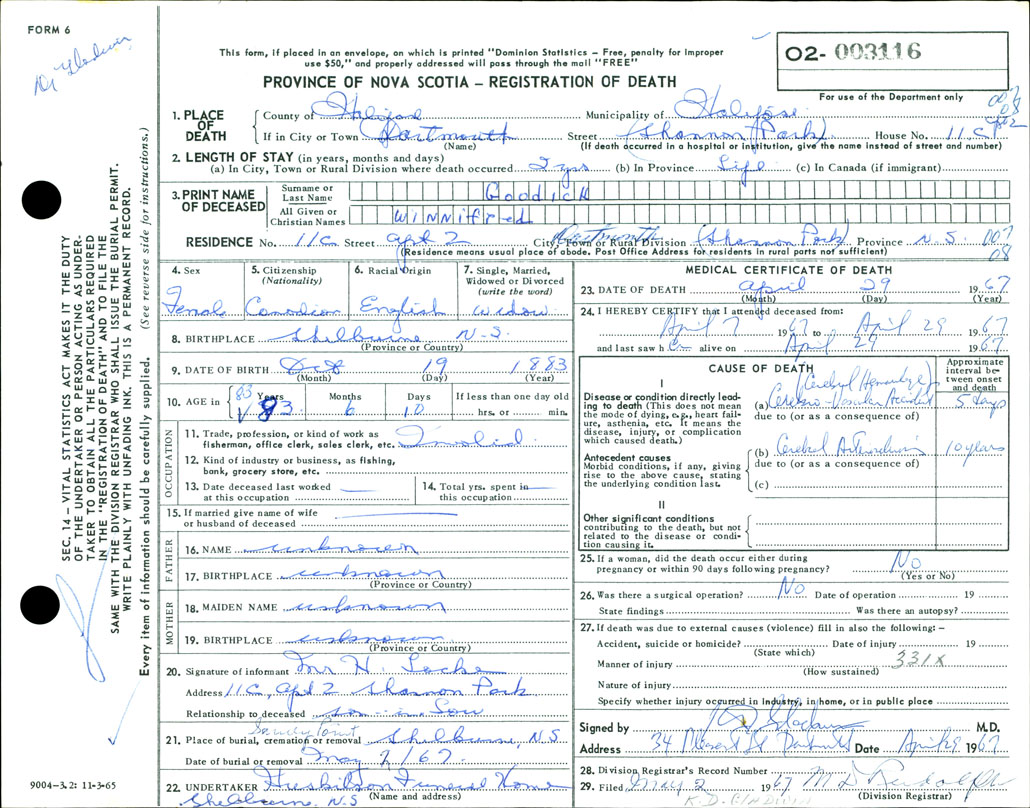 FORM 6
Dr Gladwin
This form, if placed in an envelope, on which is printed "Dominion Statistics – Free, penalty for improper
use $50," and properly addressed will pass through the mail "FREE"
02- 003116
For use of the Department only
PROVINCE OF NOVA SCOTIA – REGISTRATION OF DEATH
1. PLACE OF DEATH
County of Halifax Municipality of Halifax
If in City or Town Dartmouth Street Shannon Park House No. 11C
(Name) (If death occurred in a hospital or institution, give the name instead of street and number)
2. LENGTH OF STAY (in years, months and days)
(a) In City, Town or Rural Division where death occurred 2 yrs (b) In Province Life (c) In Canada (if immigrant)
3. PRINT NAME OF DECEASED
Surname or Last Name Goodick
All Given or Christian Names Winnifred
RESIDENCE No. 11C Street apt 2 City, Town or Rural Division Dartmouth (Shannon Park) Province N.S. 007
08
(Residence means usual place of abode. Post Office Address for residents in rural parts not sufficient)
4. Sex Female
5. Citizenship (Nationality) Canadian
6. Racial Origin English
7. Single, Married, Widowed or Divorced (write the word) Widow
8. BIRTHPLACE Shelburne N-S.
(Province or Country)
9. DATE OF BIRTH Oct 19 1883
(Month) (Day) (Year)
10. AGE in 83 Years 83 Months 6 Days 10 If less than one day old hrs. or min.
OCCUPATION
11. Trade, profession, or kind of work as
fisherman, office clerk, sales clerk, etc.
12. Kind of industry or business, as fishing,
bank, grocery store, etc.
13. Date deceased last worked
at this occupation
14. Total yrs. spent in
this occupation
15. If married give name of wife
or husband of deceased
FATHER
16. NAME unknown
17. BIRTHPLACE unknown
(Province or Country)
MOTHER
18. MAIDEN NAME unknown
19. BIRTHPLACE unknown
(Province or Country)
20. Signature of informant Mr H. Locke
Address 11C, apt 2 Shannon Park
Relationship to deceased son in law
Sandy Point
21. Place of burial, cremation or removal Shelburne, N.S.
Date of burial or removal May 2/67
22. UNDERTAKER Huskilson Funeral Home
(Name and address)
Shelburne, N.S
MEDICAL CERTIFICATE OF DEATH
23. DATE OF DEATH April 29 1967
(Month) (Day) (Year)
24. I HEREBY CERTIFY that I attended deceased from:
April 7 1967 to April 29 1967
and last saw her alive on April 29 1967
CAUSE OF DEATH
Approximate interval between onset and death
I
Disease or condition directly leading to death (This does not mean the mode of dying, e.g., heart failure, asthenia, etc. It means the disease, injury, or complication which caused death.)
(Cerebral Hemorrhage)
(a) Cerebro-Vascular Accident 5 days
due to (or as a consequence of)
Antecedent causes
Morbid conditions, if any, giving rise to the above cause, stating the underlying condition last.
(b) Cerebral 10 years
due to (or as a consequence of)
(c)
II
Other significant conditions
contributing to the death, but not related to the disease or condition causing it.
25. If a woman, did the death occur either during
pregnancy or within 90 days following pregnancy? No
(Yes or No)
26. Was there a surgical operation? No Date of operation 19
State findings Was there an autopsy?
27. If death was due to external causes (violence) fill in also the following: –
Accident, suicide or homicide? Date of injury 19
(State which)
Manner of injury 331X
(How sustained)
Nature of injury
Specify whether injury occurred in industry, in home, or in public place
Signed by M.D.
Address 34 Pleasant St Dartmouth Date April 29 1967
28. Division Registrar's Record Number
29. Filed May 2 1967
(Division Registrar)
SEC. 14 – VITAL STATISTICS ACT MAKES IT THE DUTY
OF THE UNDERTAKER OR PERSON ACTING AS UNDER-
TAKER TO OBTAIN ALL THE PARTICULARS REQUIRED
IN THE "REGISTRATION OF DEATH" AND TO FILE THE
SAME WITH THE DIVISION REGISTRAR WHO SHALL ISSUE THE BURIAL PERMIT.
WRITE PLAINLY WITH UNFADING INK. THIS IS A PERMANENT RECORD.
Every item of information should be carefully supplied. (See reverse side for instructions.)
9004–3.2: 11-3-65